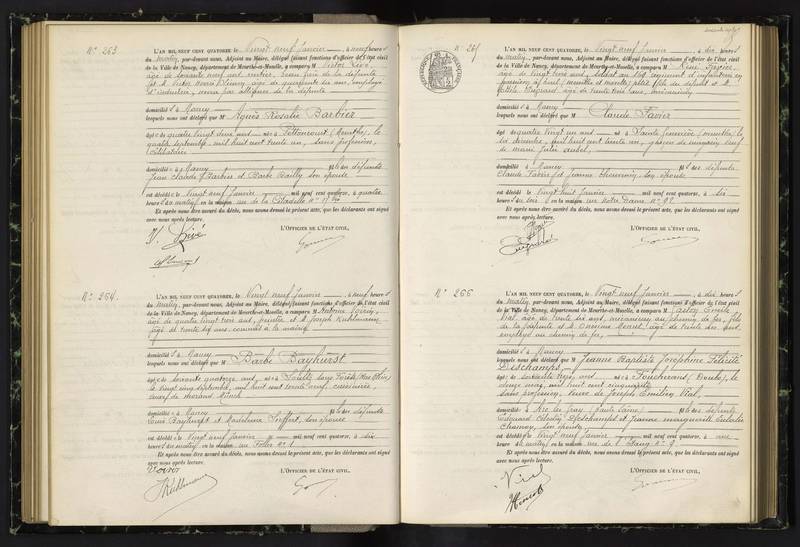 N° 263
L'AN MIL NEUF CENT QUATORZE, le Vingt neuf Janvier, à neuf heures
du matin, par-devant nous, Adjoint au Maire, délégué faisant fonctions d'officier de l'état civil
de la Ville de Nancy, département de Meurthe-et-Moselle, a comparu M Victor
âgé de soixante neuf ans
de la défunte
et M Victor âgé de quarante six ans, employé
de la défunte
domicilié s à Nancy
lesquels nous ont déclaré que M Agnès Rosalie Barbier
âgé e de quatre vingt deux ans né e à Pettoncourt (Meurthe), le
quatre septembre mil huit cent trente un, sans profession,
Célibataire
domicilié e à Nancy fille des défunts
Jean Claude Barbier et Barbe Bailly son épouse
est décédé e le vingt neuf Janvier mil neuf cent quatorze, à quatre
heures du matin, en la maison rue de la Citadelle n° 17
Et après nous être assuré du décès, nous avons dressé le présent acte, que les déclarants ont signé
avec nous après lecture.
L'OFFICIER DE L'ÉTAT CIVIL,
N° 264.
L'AN MIL NEUF CENT QUATORZE, le Vingt neuf Janvier, à neuf heures
du matin, par-devant nous, Adjoint au Maire, délégué faisant fonctions d'officier de l'état civil
de la Ville de Nancy, département de Meurthe-et-Moselle, a comparu M Antoine Voirin,
âgé de quatre vingt trois ans, et M Joseph Kuhlmann,
âgé de trente six ans, commis à la mairie
domicilié s à Nancy
lesquels nous ont déclaré que M Barbe Bayhurst
âgé e de soixante quatorze ans, né e à Soultz sous Forêts (Bas Rhin)
le vingt cinq septembre, mil huit cent trente neuf, cuisinière,
veuve de Morand Münch
domicilié e à Nancy fille des défunts
Louis Bayhurst et Madeleine son épouse
est décédé e le vingt neuf Janvier mil neuf cent quatorze, à six
heures du matin, en la maison n° 1
Et après nous être assuré du décès, nous avons dressé le présent acte, que les déclarants ont signé
avec nous après lecture.
L'OFFICIER DE L'ÉTAT CIVIL,
Voirin
JKuhlmann
N° 265
L'AN MIL NEUF CENT QUATORZE, le Vingt neuf Janvier, à dix heures
du matin, par-devant nous, Adjoint au Maire, délégué faisant fonctions d'officier de l'état civil
de la Ville de Nancy, département de Meurthe-et-Moselle, a comparu M René
âgé de vingt trois ans, soldat au régiment d'infanterie en
garnison à petit fils du défunt et M
âgé de trente trois ans, mécanicien
domicilié s à Nancy
lesquels nous ont déclaré que M Claude Favier
âgé de quatre vingt un ans né à Sainte Geneviève (Meurthe) le
dix décembre, mil huit cent trente un, garçon de magasin, veuf
de Marie Julie
domicilié à Nancy fils des défunts
Claude Favier et Jeanne Thouvenin, son épouse
est décédé le vingt huit Janvier mil neuf cent quatorze, à six
heures du soir, en la maison rue Notre Dame n° 92
Et après nous être assuré du décès, nous avons dressé le présent acte, que les déclarants ont signé
avec nous après lecture.
L'OFFICIER DE L'ÉTAT CIVIL,
N° 266
L'AN MIL NEUF CENT QUATORZE, le Vingt neuf Janvier, à dix heures
du matin, par-devant nous, Adjoint au Maire, délégué faisant fonctions d'officier de l'état civil
de la Ville de Nancy, département de Meurthe-et-Moselle, a comparu M Gaston Emile
Viel, âgé de trente six ans, mécanicien au chemin de fer, fils
de la défunte et M Onésime âgé de trente six ans,
employé au chemin de fer,
domicilié s à Nancy
lesquels nous ont déclaré que M Jeanne Baptiste Joséphine Félicité
Deschamps
âgé e de soixante trois ans, né e à Foucherans (Doubs), le
douze mars, mil huit cent cinquante,
sans profession, veuve de Joseph Emilien Viel,
domicilié e à Arc les Gray (Haute Saône) fille des défunts
Edouard Célestin Deschamps et Jeanne Marguerite Eulalie
Charnoy, son épouse
est décédé e le vingt neuf Janvier mil neuf cent quatorze, à une
heure du matin, en la maison rue de l'Etang n° 9
Et après nous être assuré du décès, nous avons dressé le présent acte, que les déclarants ont signé
avec nous après lecture.
L'OFFICIER DE L'ÉTAT CIVIL,
Viel